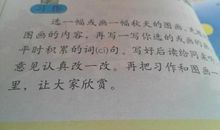 习作
选一幅或画一幅秋天的图画，先
图画的内容，再写一写你选的或画的
平时积累的词(cí)句。写好后读给同
意见认真改一改。再把习作和图画一
里，让大家欣赏。